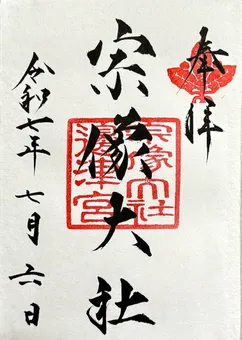 奉拝
宗像大社
宗像大社
邊津宮
令和七年七月六日